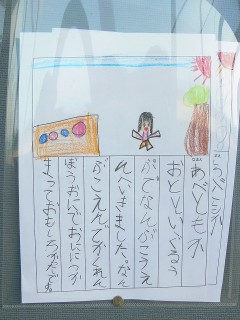 なまえ
あべともか
おとといぐるう
ぷでなんぶこうえ
んへいきました。なん
ぶこえんでかくれん
ぼうおにでおににつか
まっておもしろかったです。